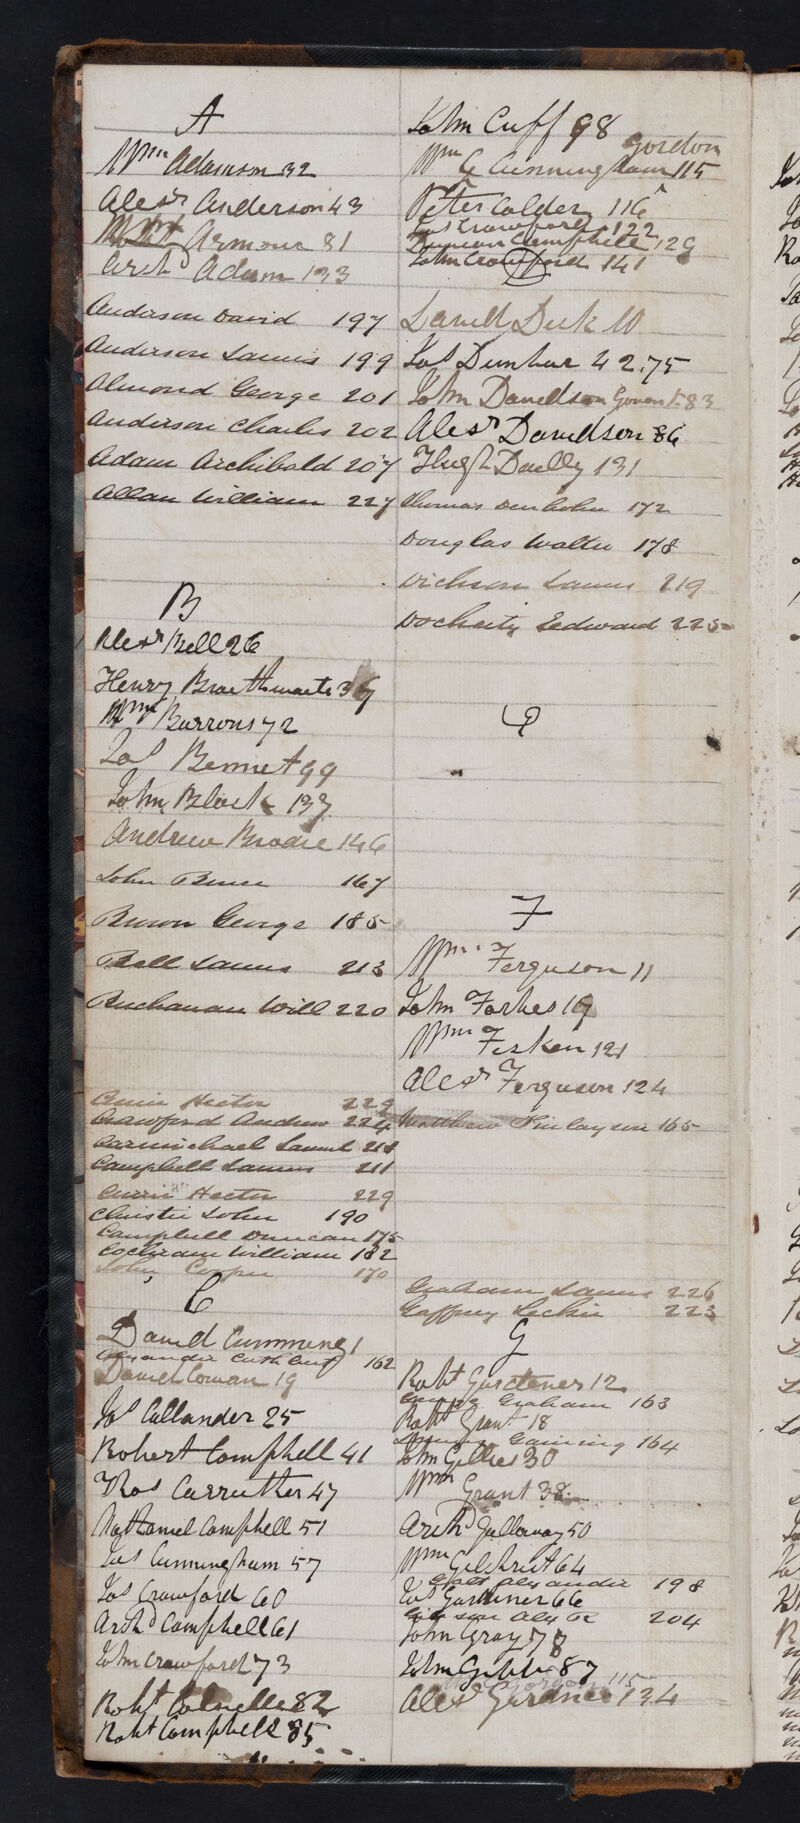 A
Wm Adamson 32
Alexr Anderson 43
Armour 81
Archd Adam 133
Anderson David 197
Anderson James 199
Almond George 201
Anderson Charles 202
Adam Archibald 207
Allan William 227
B
Alexr Bell 26
Henry Braithwaite 36
Wm Burrons 72
Jas Bennet 99
John Black 137
Andrew Brodie 146
John Bruce 167
Brown George 185
Bell James 213
Buchanan Will 220
Currie Hector 229
Crawford Andrew 224
Carmichael Samuel 218
Campbell James 211
Currie Hector 229
Christie John 190
Campbell Duncan 175
Cochrane William 182
John Cooper 170
C
David Cumming 1
Alexander Cuthbert 162
Daniel Cowan 19
Jas Callander 25
Robert Campbell 41
Thos Carruther 47
Nathaniel Campbell 51
Jas Cunningham 57
Jas Crawford 60
Archd Campbell 61
John Crawford 73
Robt 82
Robt Campbell 85
John Cuff 98
Gordon
Wm G Cunningham 115
Peter Calder 116
Jas Crawford 122
Duncan Campbell 129
John Crawford 141
D
David Dick 10
Jas Dunbar 42.75
John Davidson 83
Alexr Davidson 86
Hugh Dailly 131
Thomas Denholm 172
Douglas Walter 178
Dickson James 219
Docherty Edward 225
E
F
Wm Ferguson 11
John Forbes 19
Wm Fisken 121
Alexr Ferguson 124
Matthew Finlayson 165
Graham James 226
Gaffney Leckie 223
G
Robt Gardener 12
George Graham 163
Robt Grant 18
Gunning 164
John Gillies 30
Wm Grant 38
Archd Galloway 50
Wm Gilchrist 64
Galt Alexander 198
Jas Gardiner 66
Gibson Alexr 204
John Gray 78
John Gibb 87
Gordon 115
Alexr Gardner 134